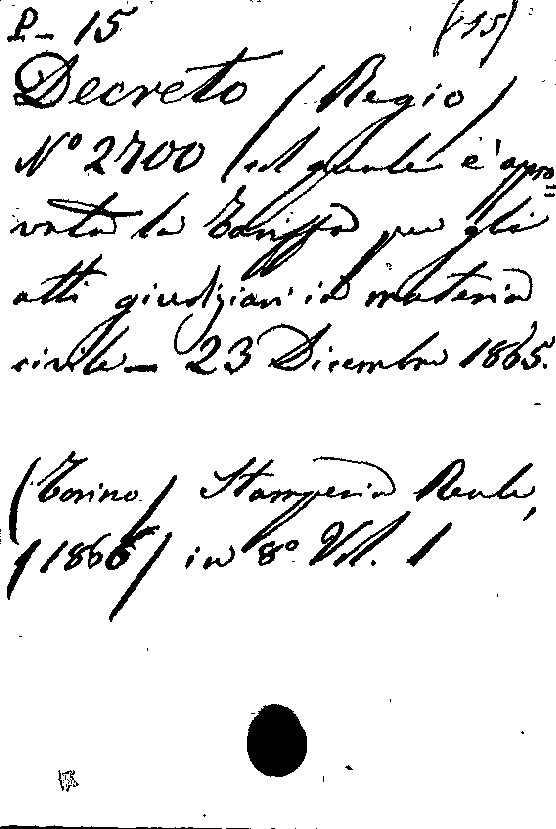 P- 15 (15)
Decreto (Regio)
N° 2700 col quale è appro=
vata la Tariffa per gli
atti giudiziari in materia
civile - 23 Dicembre 1865.
(Torino) Stamperia Reale,
(1865) in 8° Vol. 1